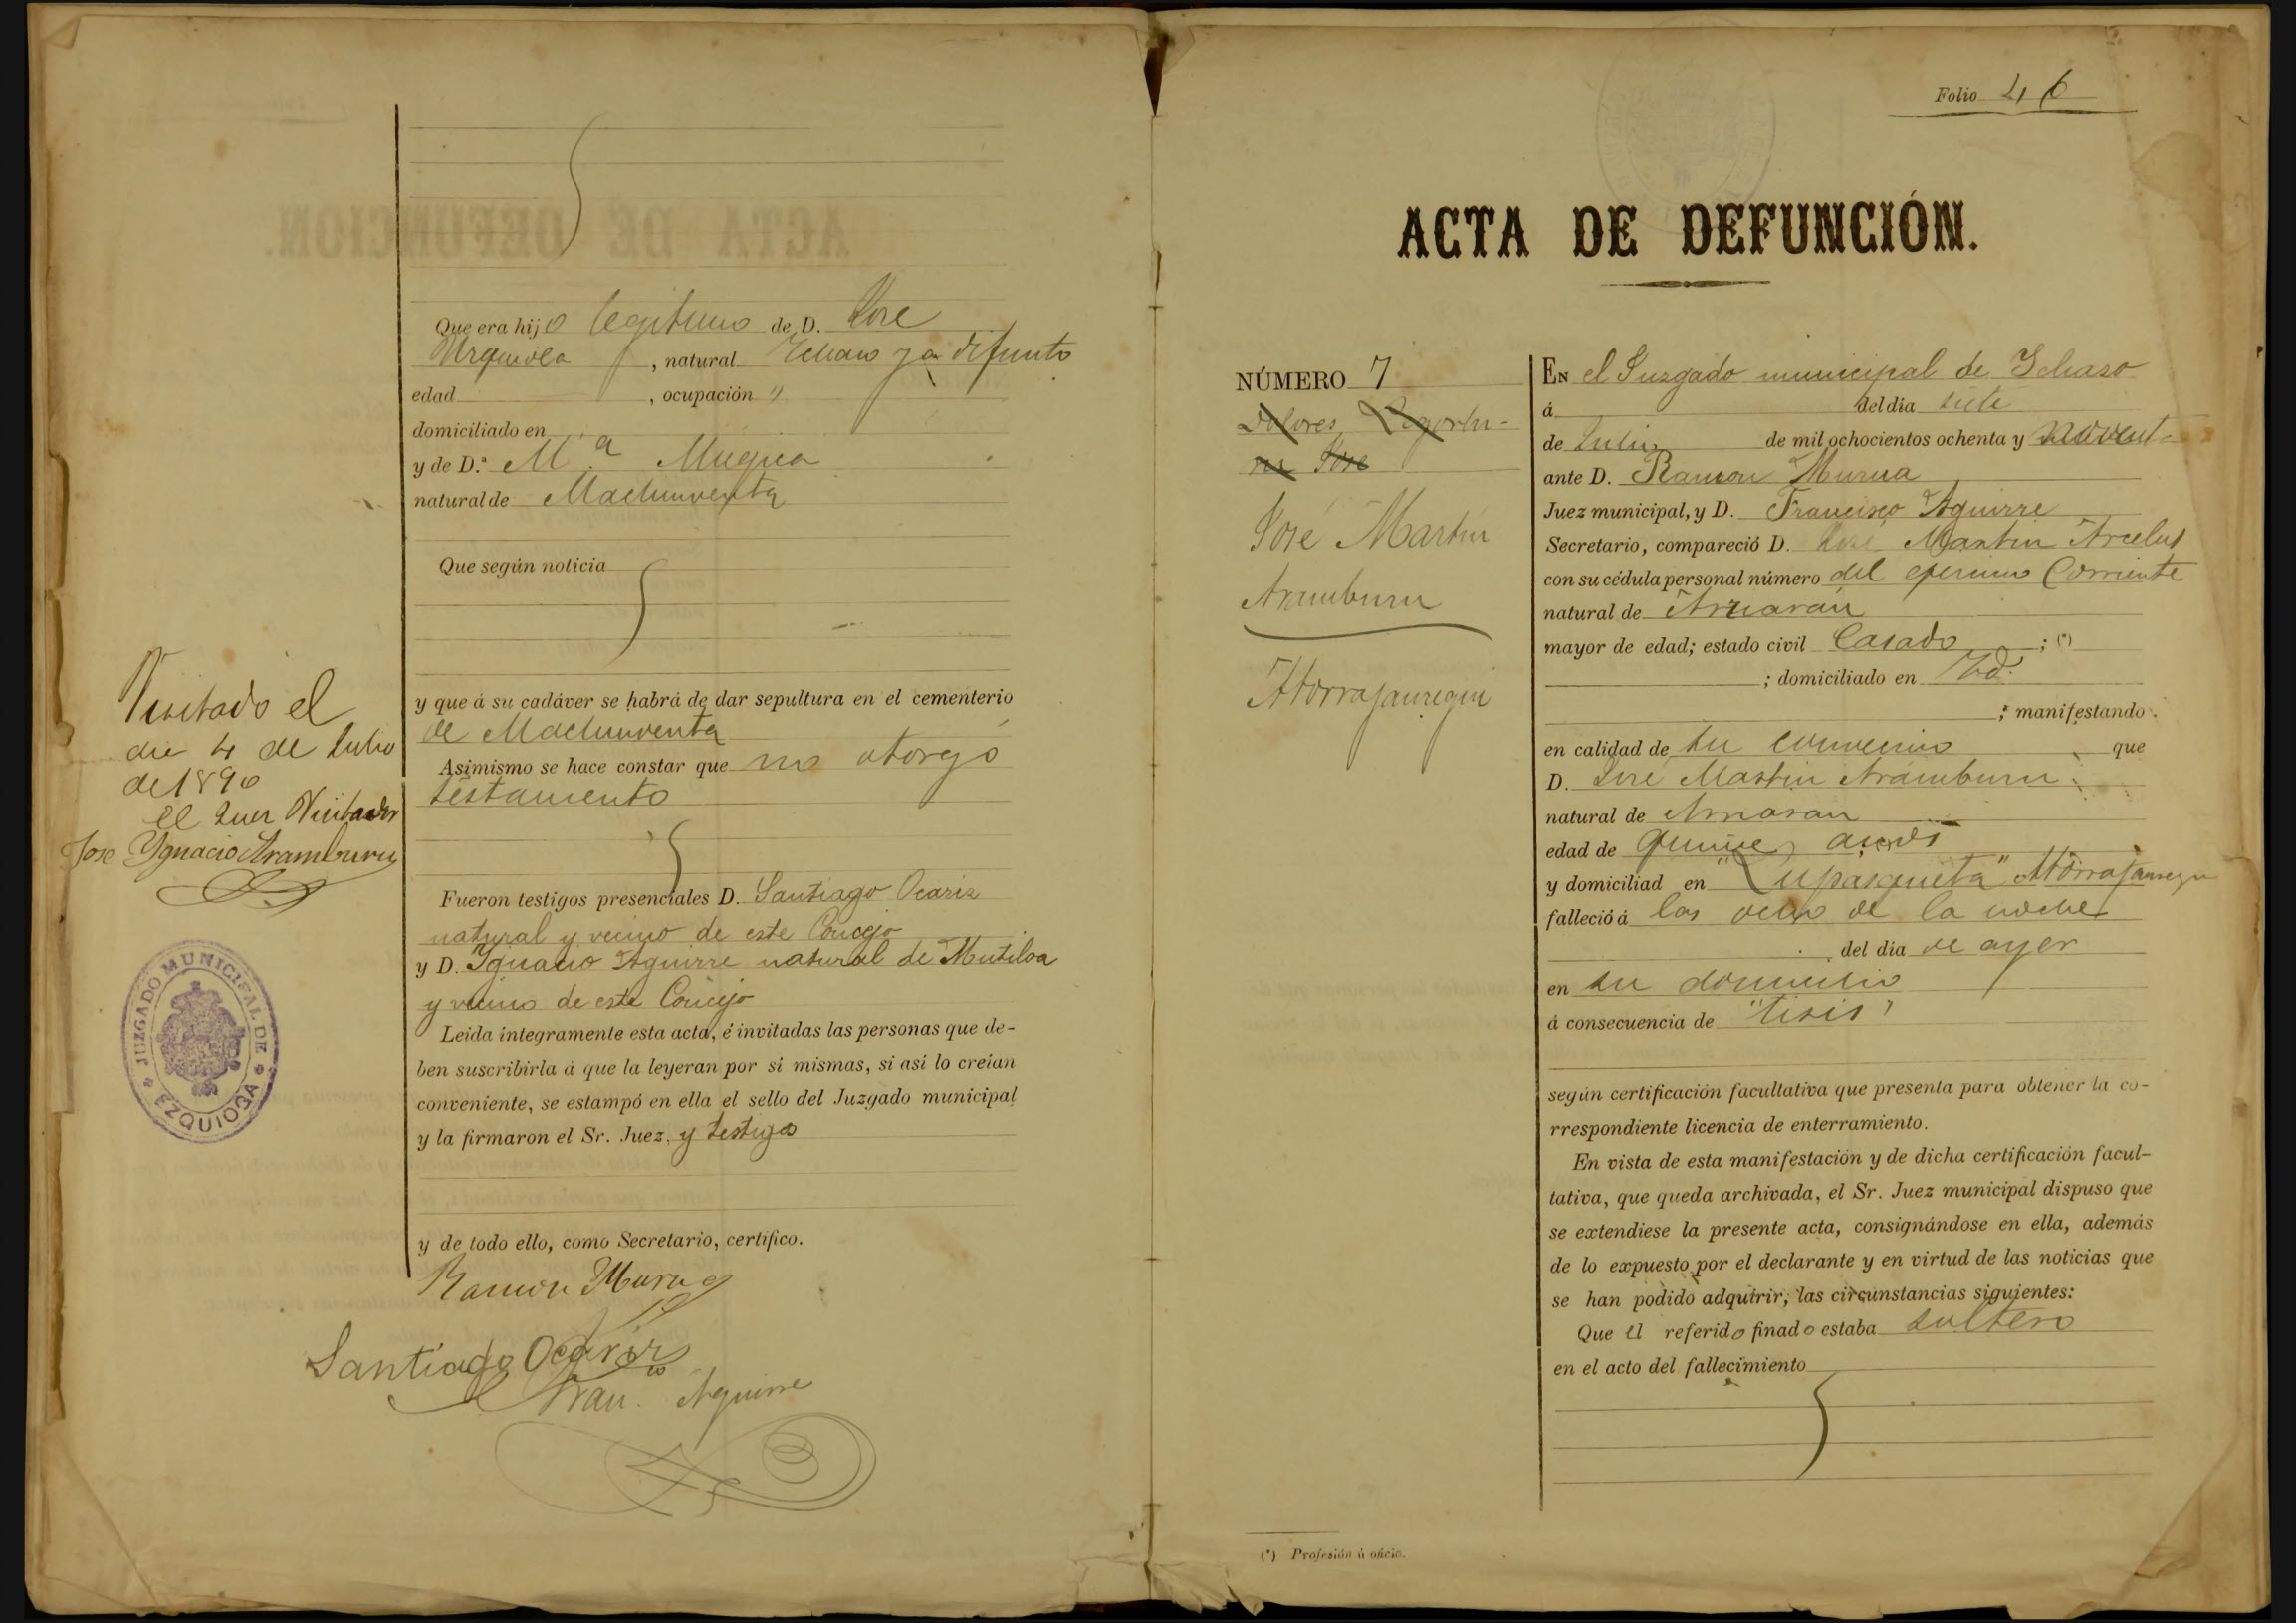 Que era hijo legitimo de D. José
Urquiola, natural Ichaso ya difunto
edad , ocupación "
domiciliado en
y de D.ª M.ª Mugica
natural de Machinventa
Que según noticia
y que á su cadáver se habrá de dar sepultura en el cementerio
de Machinventa
Asimismo se hace constar que no otorgó
testamento
Fueron testigos presenciales D. Santiago Ocariz
natural y vecino de este Concejo
y D. Ignacio Aguirre natural de Mutiloa
y vecino de este Concejo
Leida íntegramente esta acta, é invitadas las personas que de-
ben suscribirla á que la leyeran por sí mismas, si así lo creían
conveniente, se estampó en ella el sello del Juzgado municipal
y la firmaron el Sr. Juez, y testigos
y de todo ello, como Secretario, certifico.
Ramon Murua
Santiago Ocariz
Fran.co Aguirre
Visitado el
dia 4 de Julio
de 1890
El Juez Visitador
Jose Ygnacio Aramburu
JUZGADO MUNICIPAL DE
EZQUIOGA
Folio 46
ACTA DE DEFUNCIÓN.
NÚMERO 7
Dolores Legorbu-
ru José
José Martin
Aramburu
Atorrajauregui
EN el Juzgado municipal de Ichaso
á del dia siete
de Julio de mil ochocientos ochenta y novent-
ante D. Ramon Murua
Juez municipal, y D. Francisco Aguirre
Secretario, compareció D. José Martin Arcelus
con su cédula personal número del ejercicio Corriente
natural de Arriarán
mayor de edad; estado civil Casado ; (*)
; domiciliado en Id.
; manifestando
en calidad de su convecino que
D. José Martin Aramburu
natural de Arriaran
edad de quince años
y domiciliad en "Lupasqueta" Atorrajauregui
falleció á las ocho de la noche
del día de ayer
en su domicilio
á consecuencia de "tisis"
según certificación facultativa que presenta para obtener la co-
rrespondiente licencia de enterramiento.
En vista de esta manifestación y de dicha certificación facul-
tativa, que queda archivada, el Sr. Juez municipal dispuso que
se extendiese la presente acta, consignándose en ella, además
de lo expuesto por el declarante y en virtud de las noticias que
se han podido adquirir, las circunstancias siguientes:
Que el referido finado estaba soltero
en el acto del fallecimiento
(*) Profesión ú oficio.